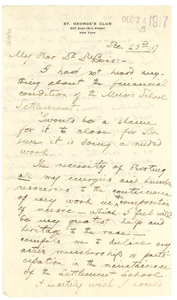 ST. GEORGE'S CLUB
207 East 16th Street
NEW YORK
DEC 24 1917
Dec. 23rd 17
My Dear Dr. Du Bois:-
I had not heard any-
thing about the financial
condition of the Music School
Settlement.
Would be a shame
for it to close, for I'm
sure it is doing a needed
work.
The necessity of devoting
all my energies and
resources to the continuance
of my work as composition
of music - which I feel will
be very great help and
heritage to the race
compels me to decline any
active membership or parti-
cipation in the maintenance
of the Settlement School.
I only wish I could